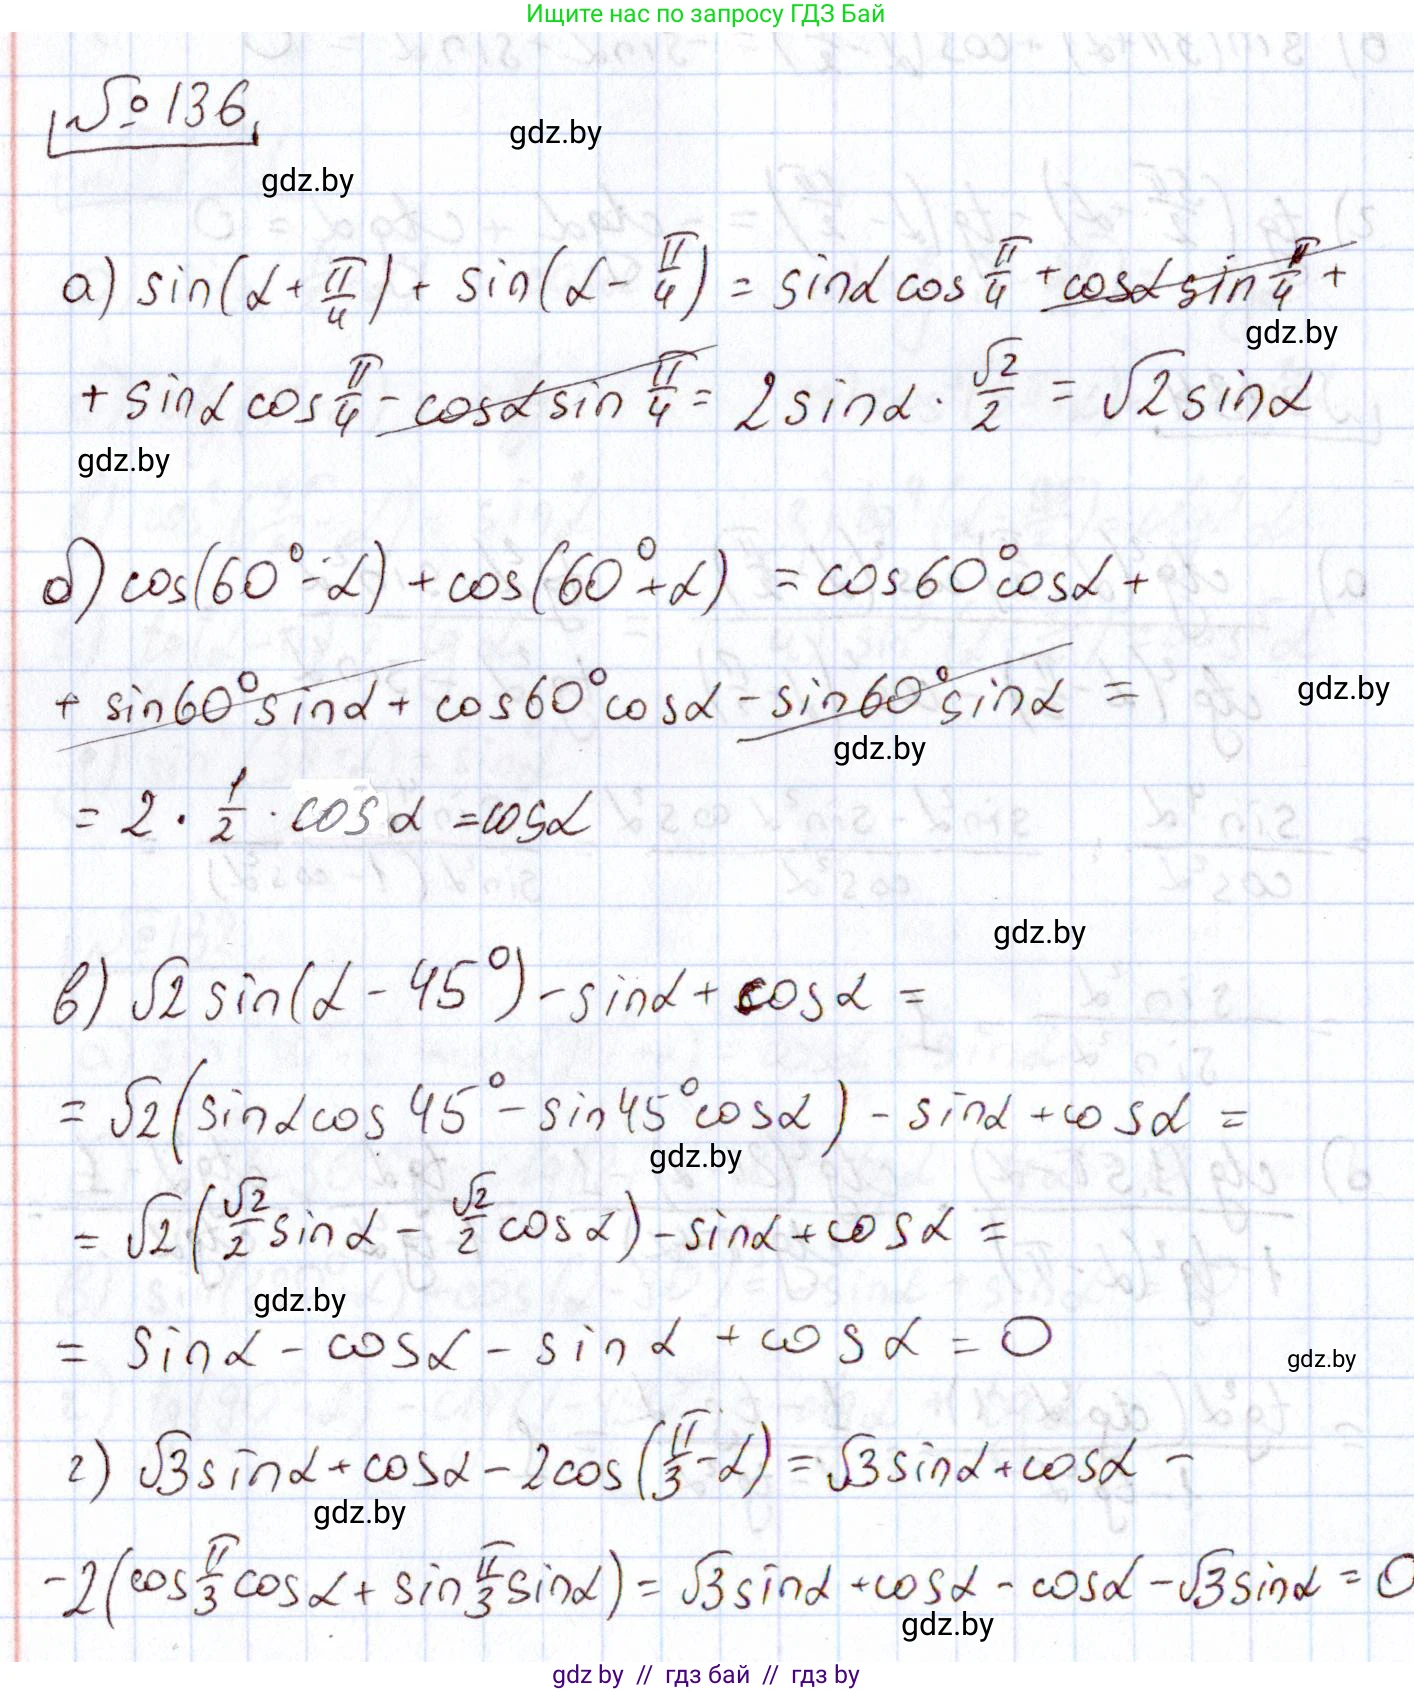 Ищите нас по запросу ГДЗ Бай
№136
gdz.by
gdz.by
а) sin(α + π/4) + sin(α - π/4) = sinα cos π/4 + cosα sin π/4 +
gdz.by
+ sinα cos π/4 - cosα sin π/4 = 2 sinα · √2/2 = √2 sinα
gdz.by
б) cos(60° - α) + cos(60° + α) = cos60° cosα +
+ sin60° sinα + cos60° cosα - sin60° sinα =
gdz.by
gdz.by
= 2 · 1/2 · cosα = cosα
gdz.by
в) √2 sin(α - 45°) - sinα + cosα =
= √2 (sinα cos 45° - sin45° cosα) - sinα + cosα =
gdz.by
= √2 (√2/2 sinα - √2/2 cosα) - sinα + cosα =
gdz.by
= sinα - cosα - sinα + cosα = 0
gdz.by
г) √3 sinα + cosα - 2cos(π/3 - α) = √3 sinα + cosα -
gdz.by
-2(cos π/3 cosα + sin π/3 sinα) = √3 sinα + cosα - cosα - √3 sinα = 0
gdz.by
gdz by // гдз бай // гдз by